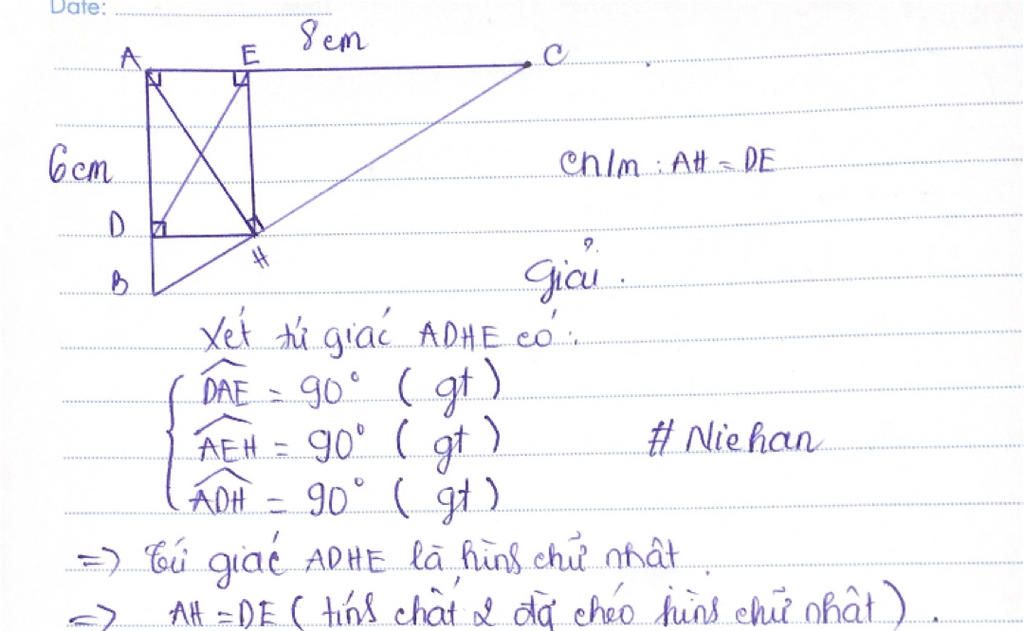 Date:
8cm
A E C
6cm
ch/m : AH = DE
D
H
B
Giải.
Xét tứ giác ADHE có:
DAE = 90° ( gt )
AEH = 90° ( gt )
# Niehan
ADH = 90° ( gt )
=> Tứ giác ADHE là hìnS chữ nhât.
=> AH = DE ( tínS chất 2 đg chéo hìnS chữ nhât ) .